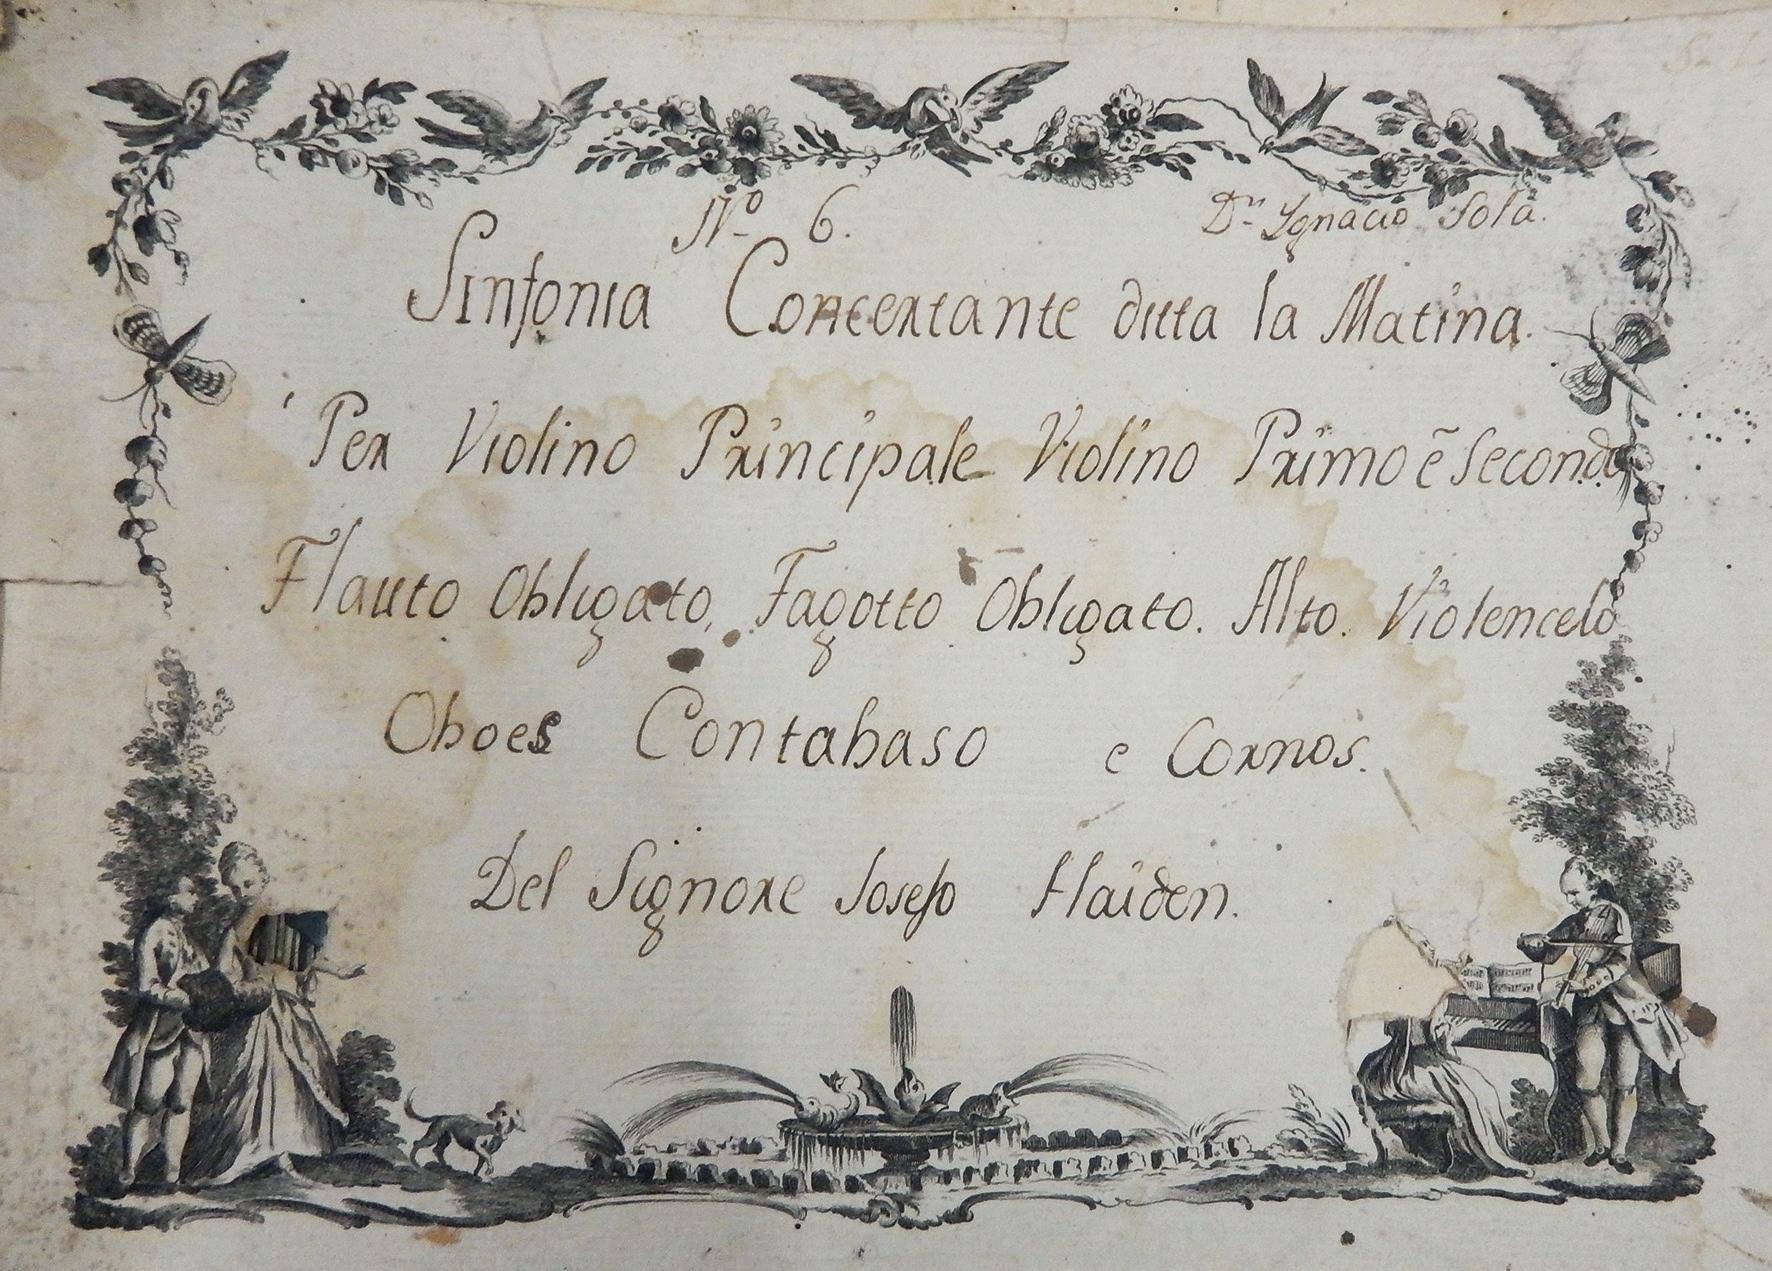 Nº 6.
Dⁿ Ygnacio Solà.
Sinfonia Concertante ditta la Matina.
Per Violino Principale Violino Primo ẽ Secondo
Flauto Obligato, Fagotto Obligato. Alto. Violencelo
Oboes Contabaso e Cornos.
Del Signore Josefo Haiden.